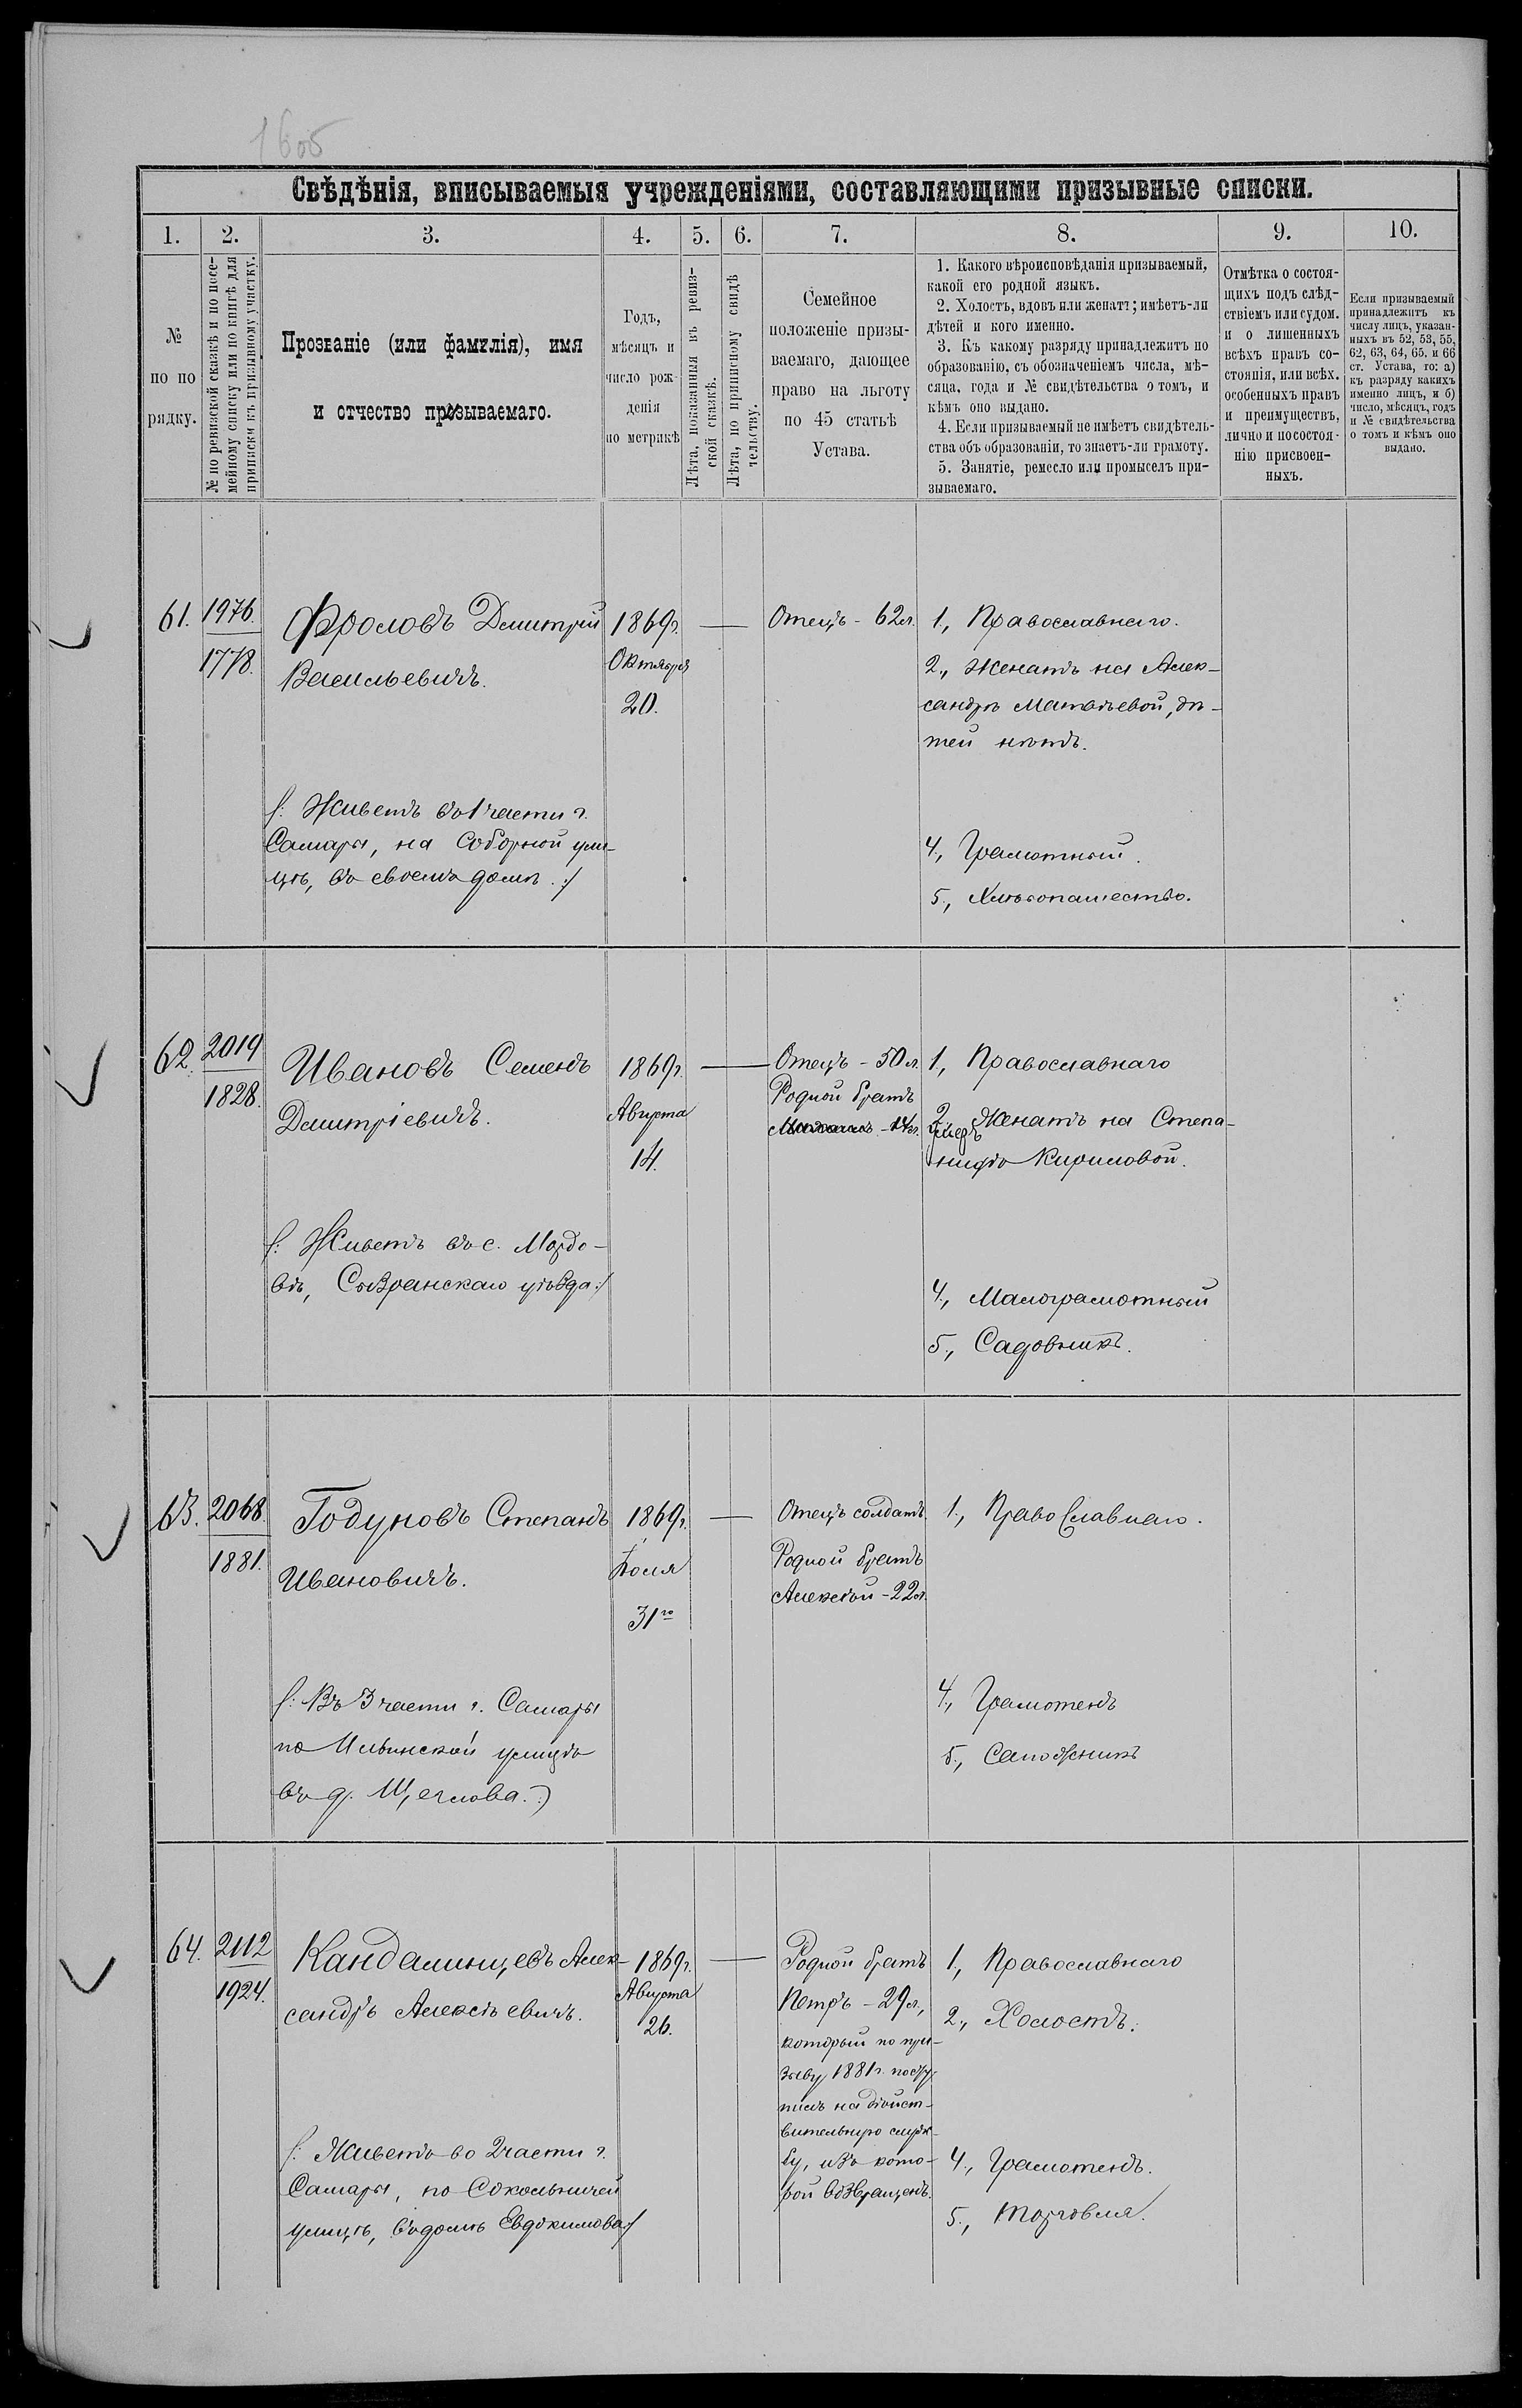 1605
Свѣдѣнія, вписываемыя учрежденіями, составляющими призывные списки.
1. 2. 3. 4. 5. 6. 7. 8. 9. 10.
№
по по
рядку.
№ по ревизской сказкѣ и по посе-
мейному списку или по книгѣ для
приписки къ призывному участку.
Прозваніе (или фамилія), имя
и отчество призываемаго.
Годъ,
мѣсяцъ и
число рож-
денія
по метрикѣ
Лѣта, показанныя въ ревиз-
ской сказкѣ.
Лѣта, по приписному свидѣ
тельству.
Семейное
положеніе призы-
ваемаго, дающее
право на льготу
по 45 статьѣ
Устава.
1. Какого вѣроисповѣданія призываемый,
какой его родной языкъ.
2. Холостъ, вдовъ или женатъ; имѣетъ-ли
дѣтей и кого именно.
3. Къ какому разряду принадлежитъ по
образованію, съ обозначеніемъ числа, мѣ-
сяца, года и № свидѣтельства о томъ, и
кѣмъ оно выдано.
4. Если призываемый не имѣетъ свидѣтель-
ства объ образованіи, то знаетъ-ли грамоту.
5. Занятіе, ремесло или промыселъ при-
зываемаго.
Отмѣтка о состоя-
щихъ подъ слѣд-
ствіемъ или судом.
и о лишенныхъ
всѣхъ правъ со-
стоянія, или всѣх.
особенныхъ правъ
и преимуществъ,
лично и по состоя-
нію присвоен-
ныхъ.
Если призываемый
принадлежитъ къ
числу лицъ, указан-
ныхъ въ 52, 53, 55,
62, 63, 64, 65. и 66
ст. Устава, то: а)
къ разряду какихъ
именно лицъ, и б)
число, мѣсяцъ, годъ
и № свидѣтельства
о томъ и кѣмъ оно
выдано.
61.
1976.
1778.
Фроловъ Дмитрій
Васильевичъ.
/: Живетъ въ 1 части г.
Самары, на Соборной ули-
цѣ, въ своемъ домѣ :/
1869г.
Октября
20.
Отецъ - 62 л.
1., Православнаго.
2., Женатъ на Алек-
сандрѣ Матвѣевой, дѣ-
тей нѣтъ.
4., Грамотный.
5., Хлѣбопашество.
62.
2019
1828.
Ивановъ Семенъ
Дмитріевичъ.
/: Живетъ въ с. Мордо-
вѣ, Сызранскаго уѣзда :/
1869г.
Августа
14.
Отецъ - 50 л.
Родной братъ
- 14 л.
умеръ
1., Православнаго
2., Женатъ на Степа-
нидѣ Кириловой.
4., Малограмотный
5., Садовникъ.
63.
2068.
1881.
Годуновъ Степанъ
Ивановичъ.
/: Въ 3 части г. Самары
по Ильинской улицѣ
въ д. Щеглова. :)
1869г.
Іюля
31го
Отецъ солдатъ.
Родной братъ
Алексѣй - 22 л.
1., Православнаго.
4., Грамотенъ
5., Сапожникъ
64.
2112
1924.
Кандалинцевъ Алек-
сандръ Алексѣевичъ.
/: Живетъ во 2 части г.
Самары, по Сокольничей
улицѣ, въ домѣ Евдокимова :/
1869г.
Августа
26.
Родной братъ
Петръ - 29 л.,
который по при-
зыву 1881 г. посту-
пилъ на дѣйст-
вительную служ-
бу, изъ кото-
рой возвращенъ.
1., Православнаго
2., Холостъ.
4., Грамотенъ.
5., Торговля.